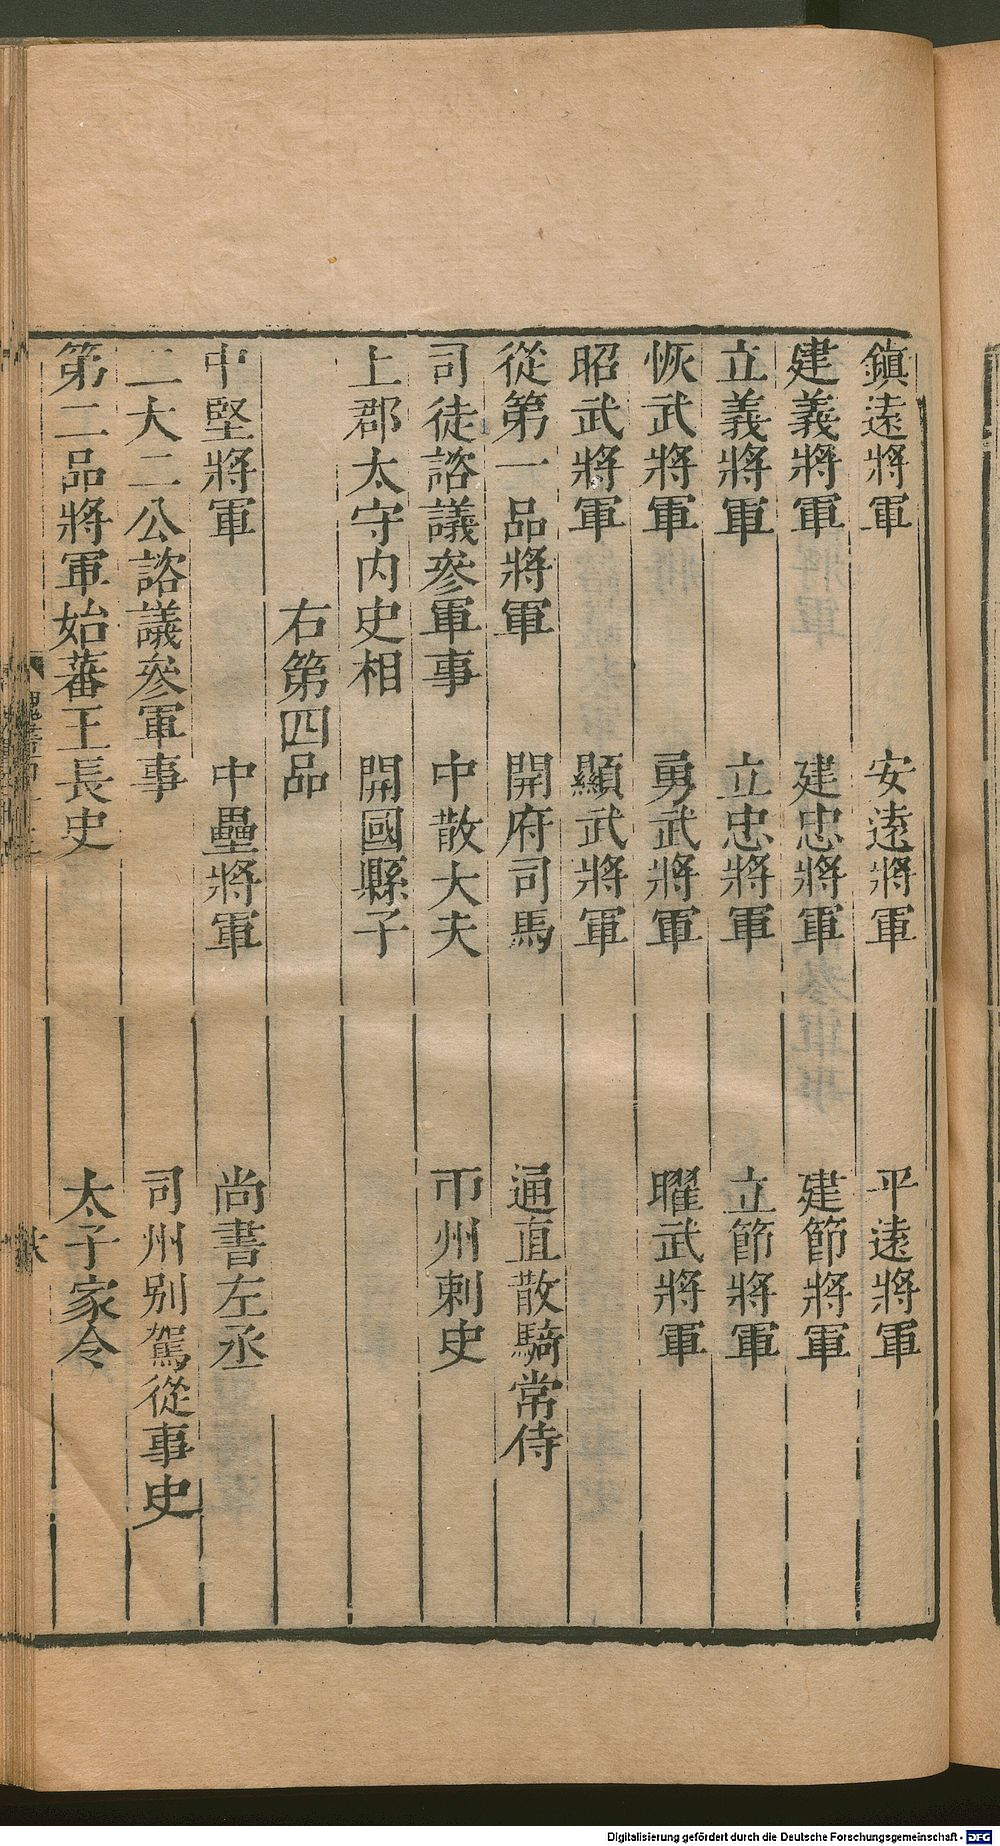 鎮遠將軍 安遠將軍 平遠將軍
建義將軍 建忠將軍 建節將軍
立義將軍 立忠將軍 立節將軍
恢武將軍 勇武將軍 曜武將軍
昭武將軍 顯武將軍
從第一品將軍 開府司馬 通直散騎常侍
司徒諮議參軍事 中散大夫 州刺史
上郡太守内史相 開國縣子
右第四品
中堅將軍 中壘將軍 尚書左丞
二大二公諮議參軍事 司州别駕從事史
第二品將軍始蕃王長史 太子家令
魏書
Digitalisierung gefördert durch die Deutsche Forschungsgemeinschaft - DFG